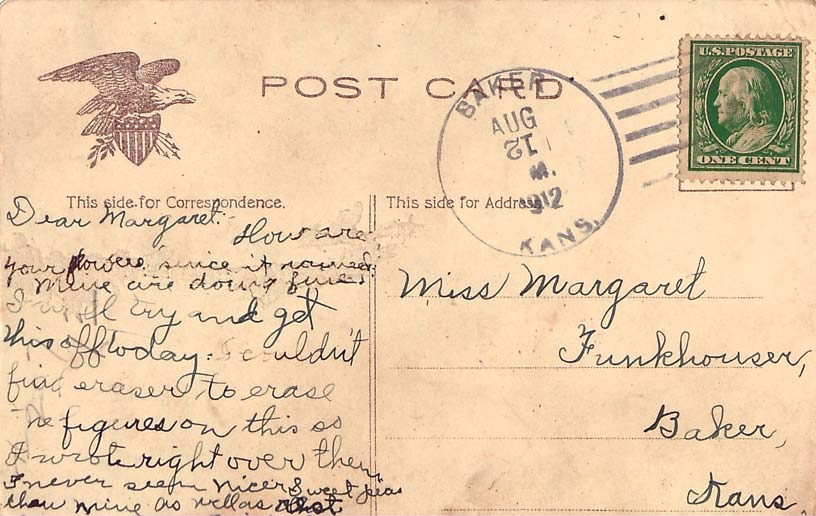 POST CARD
BAKER
AUG
21
M.
1912
KANS.
U.S. POSTAGE
ONE CENT
This side for Correspondence.
This side for Address.
Dear Margaret:-
How are
your flowers since it rained.
Mine are doing fine.
I will try and get
this off today. I couldn't
find eraser to erase
the figures on this so
I wrote right over them
I never seen nicer Sweet peas
than mine as well as
Miss Margaret
Funkhouser,
Baker,
Kans.